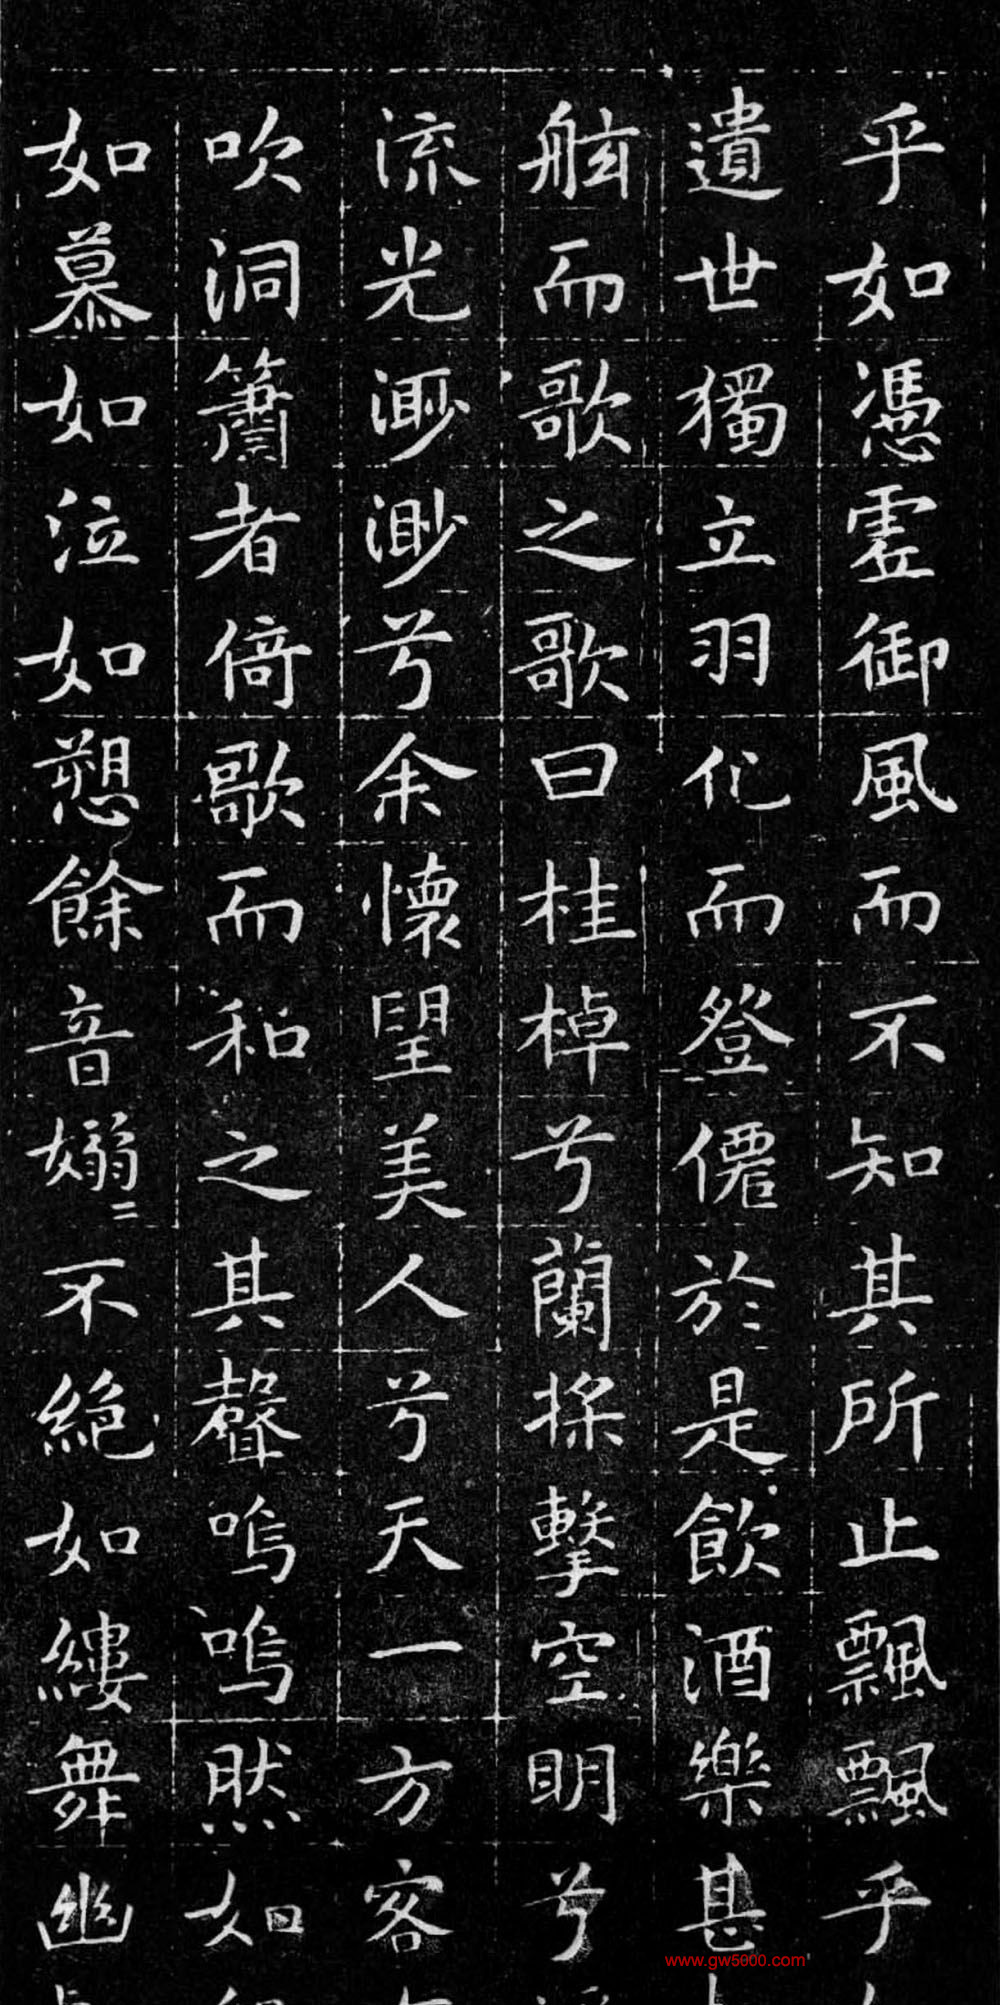 乎如憑虛御風而不知其所止飄飄乎
遺世獨立羽化而登僊於是飲酒樂甚
舷而歌之歌曰桂棹兮蘭槳擊空明兮
流光渺渺兮余懷望美人兮天一方客
吹洞簫者倚歌而和之其聲嗚嗚然如
如慕如泣如愬餘音嫋〻不絕如縷舞幽
www.gw5000.com